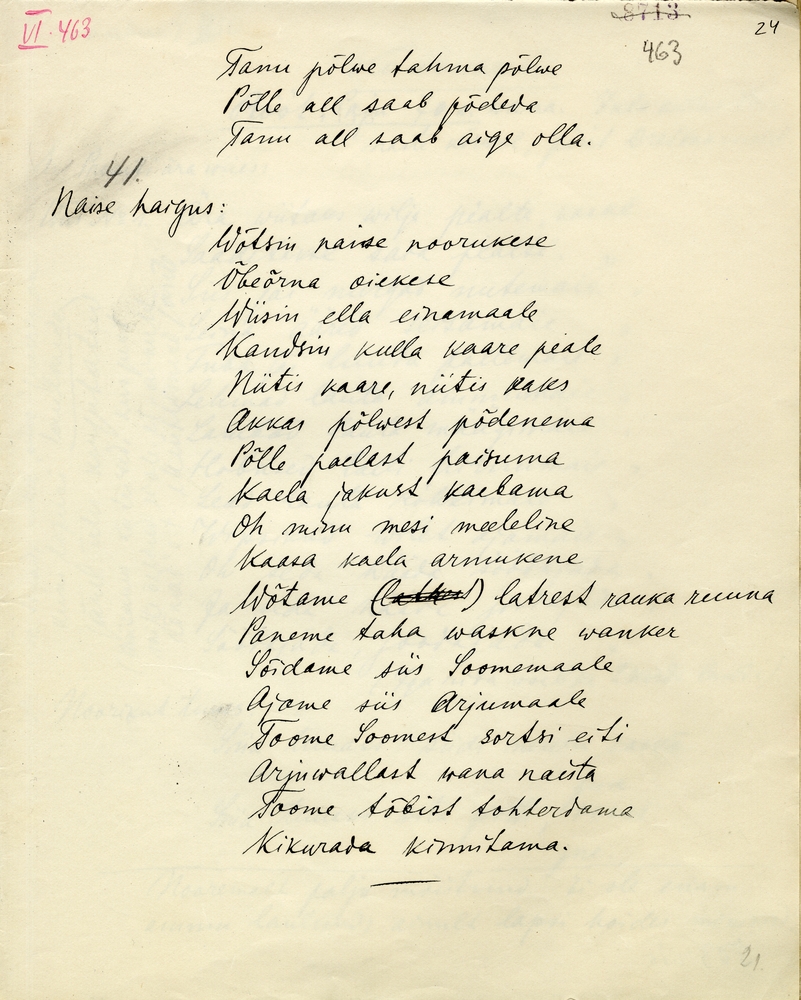 VI. 463
8713
24
463
Tanu põlwe tahma põlwe
Põlle all saab põdeda
Tanu all saab aige olla.
41.
Naise haigus:
Wõtsin naise noorukese
Õbeõrna oiekese
Wiisin ella einamaale
Kandsin kulla kaare peale
Niitis kaare, niitis kaks
Akkas põlwest põdenema
Põlle paelast paisuma
Kaela jakust kaebama
Oh minu mesi meeleline
Kaasa kaela armukene
Wõtame () latrest rauka ruuna
Paneme taha waskne wanker
Sõidame siis Soomemaale
Ajame siis Arjumaale
Toome Soomest sortsi eiti
Arjuwallast wana naista
Toome tõbist tohterdama
Kikurada kinnitama.
21.